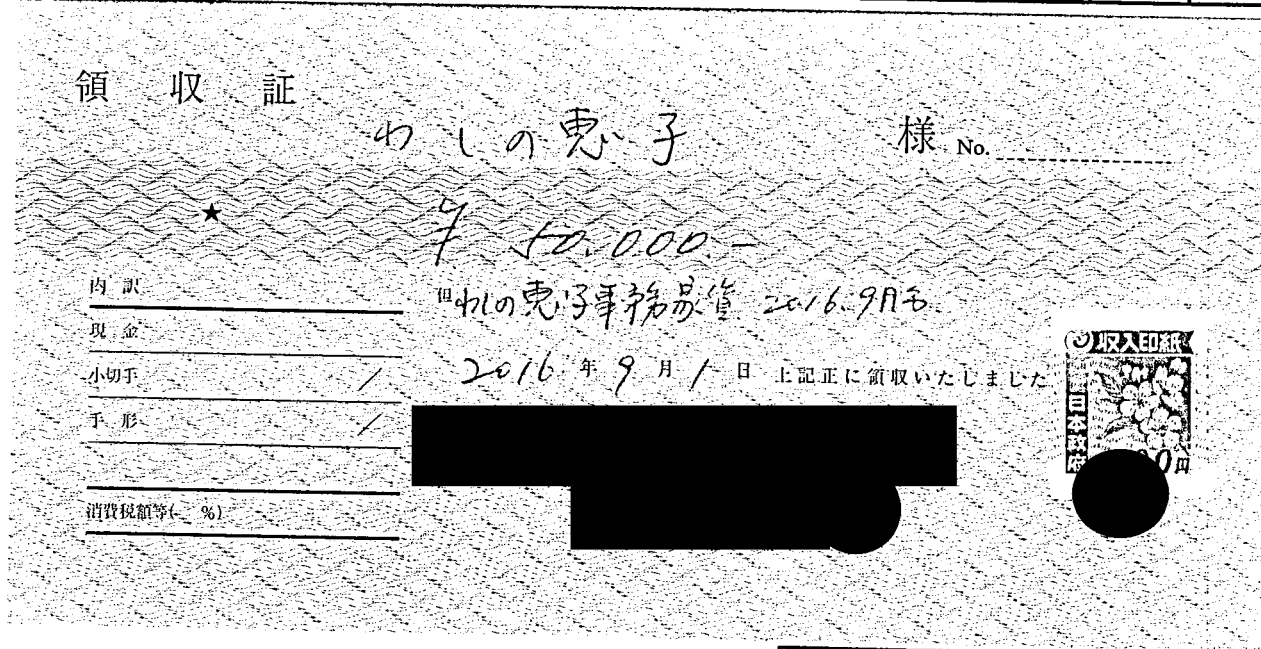 領収証
わしの恵子 様 No.
★
¥ 50,000.-
内訳
現金
小切手 /
手形 /
消費税額等( %)
但 わしの恵子事務所家賃 2016.9月分
2016年9月1日 上記正に領収いたしました
収入印紙
日本政府
00円